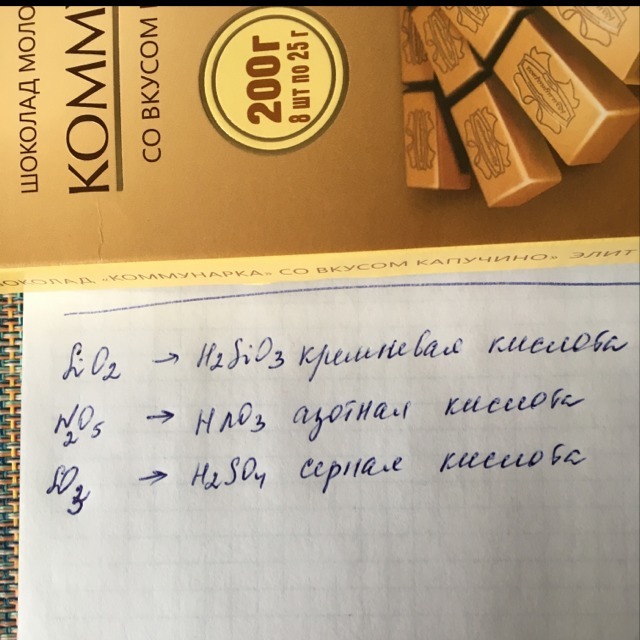 ШОКОЛАД МОЛО
КОММУ
СО ВКУСОМ
200г
8 шт по 25 г
ШОКОЛАД «КОММУНАРКА» СО ВКУСОМ КАПУЧИНО» ЭЛИТ
SiO2 → H2SiO3 кремневая кислота
N2O5 → HNO3 азотная кислота
SO3 → H2SO4 серная кислота